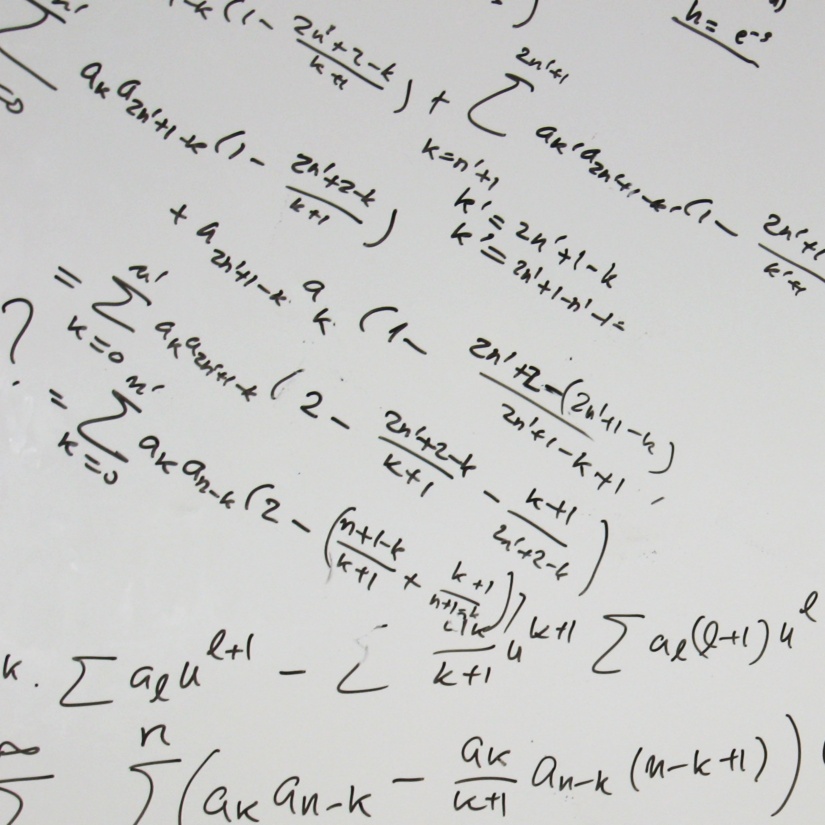 -k (1 - \frac{2n'+2-k}{k+1}) + \sum_{k=n'+1}^{2n'+1} a_{k'} a_{2n'+1-k'} (1 - \frac{2n'+1
h = e^{-s}
a_k a_{2n'+1-k} (1 - \frac{2n'+2-k}{k+1})
k' = 2n'+1-k
k' = 2n'+1-n'-1 =
+ a_{2n'+1-k} a_k (1 - \frac{2n'+2-(2n'+1-k)}{2n'+1-k+1})
= \sum_{k=0}^{n'} a_k a_{2n'+1-k} (2 - \frac{2n'+2-k}{k+1} - \frac{k+1}{2n'+2-k})
? = \sum_{k=0}^{n'} a_k a_{n-k} (2 - (\frac{n+1-k}{k+1} + \frac{k+1}{n+1-k}))
k. \sum a_l u^{l+1} - \sum \frac{a_k}{k+1} u^{k+1} \sum a_l (l+1) u^l
∞ \sum^{n} (a_k a_{n-k} - \frac{a_k}{k+1} a_{n-k} (n-k+1))